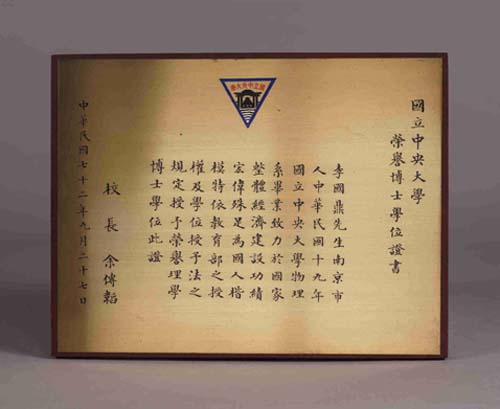 國立中央大學
國立中央大學
榮譽博士學位證書
李國鼎先生南京市
人中華民國十九年
國立中央大學物理
系畢業致力於國家
整體經濟建設功績
宏偉殊足為國人楷
模特依教育部之授
權及學位授予法之
規定授予榮譽理學
博士學位此證
校長 余傳韜
中華民國七十二年九月二十七日